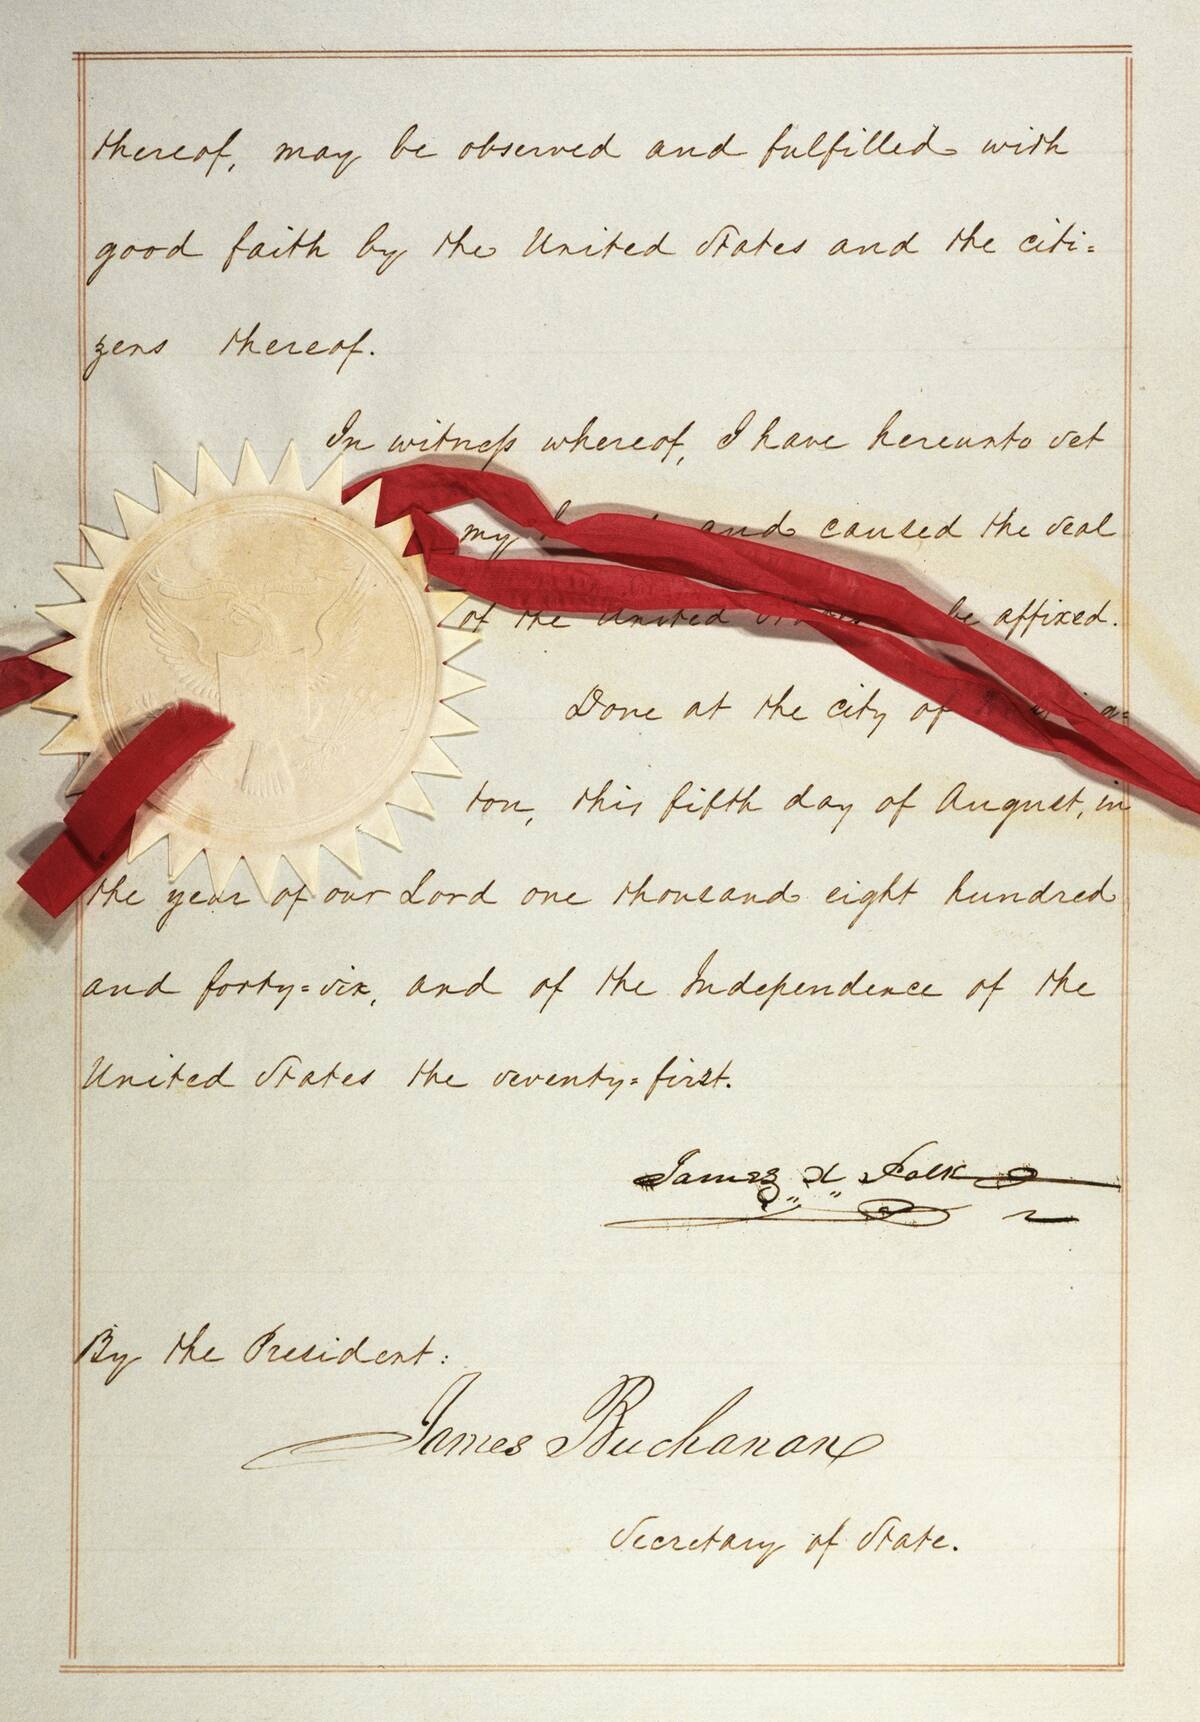 thereof, may be observed and fulfilled with
good faith by the United States and the citi=
zens thereof.
In witness whereof, I have hereunto set
my and caused the seal
of the United States be affixed.
Done at the city of
ton, this fifth day of August, in
the year of our Lord one thousand eight hundred
and forty=six, and of the Independence of the
United States the seventy=first.
James K Polk
By the President:
James Buchanan
Secretary of State.